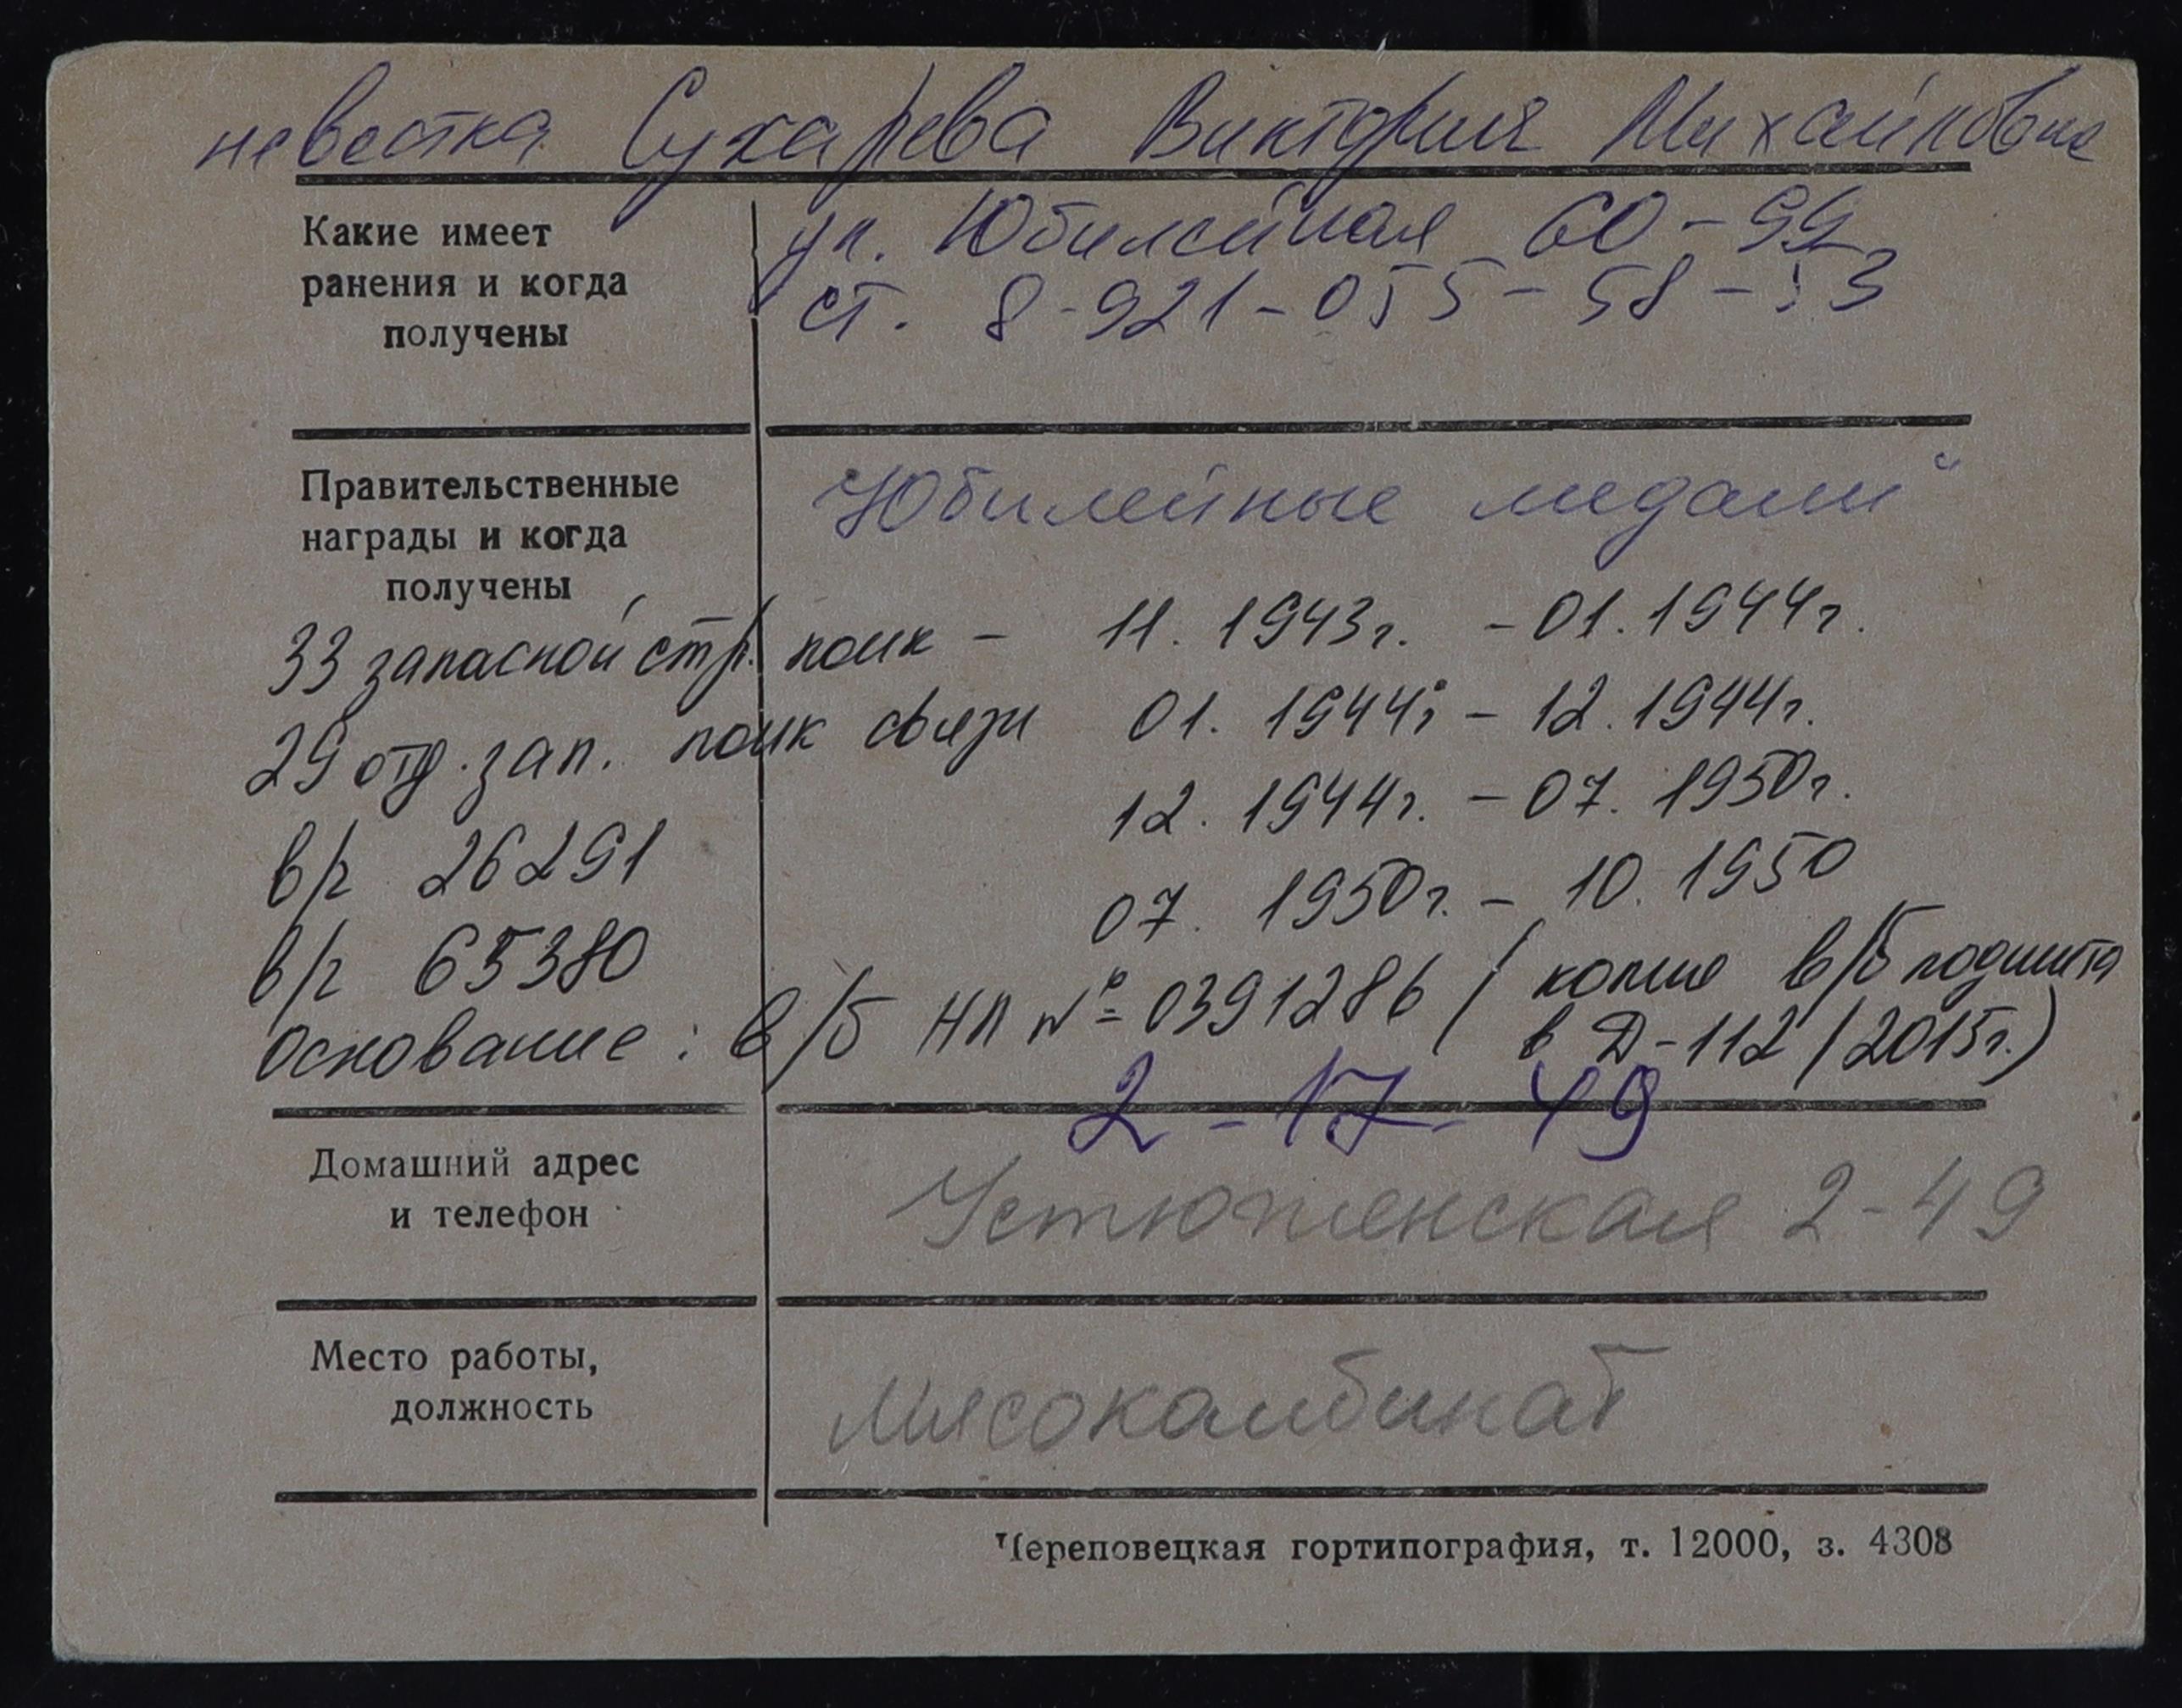 невестка Сухарева Виктория Михайловна
Какие имеет ранения и когда получены
ул. Юбилейная 60-99
ст. 8-921-055-58-53
Правительственные награды и когда получены
Юбилейные медали"
33 запасной стр. полк - 11.1943г. - 01.1944г.
29 отд. зап. полк связи 01.1944г. - 12.1944г.
в/ч 26291 12.1944г. - 07.1950г.
в/ч 65380 07.1950г. - 10.1950
основание: в/б НП № 0391286 (копия в/б подшита
в Д-112/2015г.)
2-17-49
Домашний адрес и телефон
Устюженская 2-49
Место работы, должность
Мясокомбинат
Череповецкая гортипография, т. 12000, з. 4308